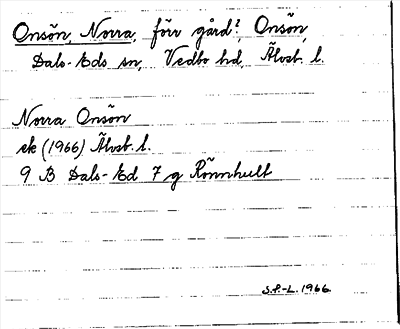 Onsön, Norra, förr gård? Onsön,
Dals-Eds sn, Vedbo hd, Älvsb. l.
Norra Onsön
ek (1966) Älvsb. l.
9 B Dals-Ed 7 g Rönnhult
S.P.-L. 1966